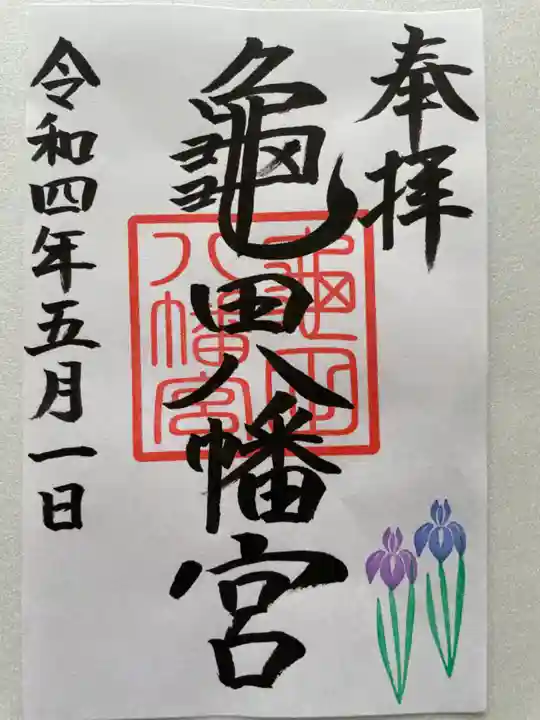 奉拝
龜田八幡宮
龜田
八幡宮
令和四年五月一日